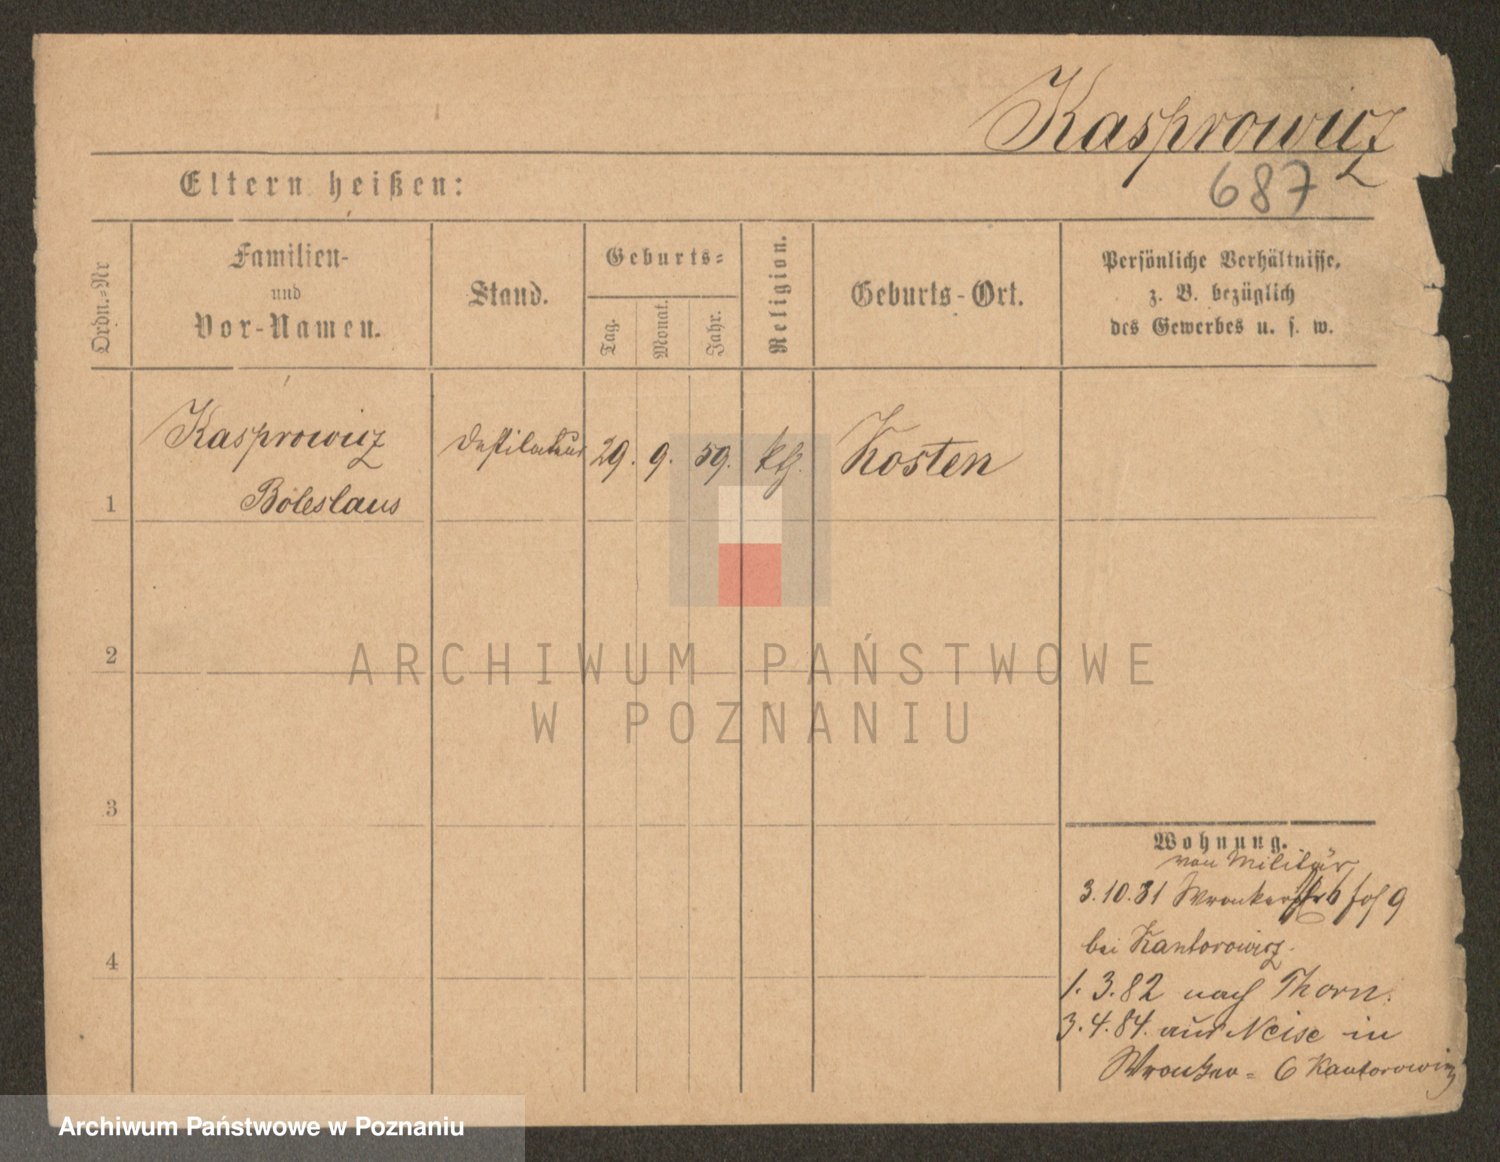 Kasprowicz
Eltern heißen:
687
Ordn.=Nr
Familien-
und
Vor-Namen.
Stand.
Geburts=
Tag.
Monat.
Jahr.
Religion.
Geburts-Ort.
Persönliche Verhältnisse,
z. B. bezüglich
des Gewerbes u. s. w.
1
Kasprowicz
Boleslaus
Destilateur
29.
9.
59.
kth.
Kosten
2
ARCHIWUM PAŃSTWOWE
W POZNANIU
3
Wohnung.
von Militär
3.10.81 Wronkerstr 6 9
bei Kantorowicz.
4
1.3.82 nach Thorn.
3.4.84. aus Neise in
Wronker= 6 Kantorowicz
Archiwum Państwowe w Poznaniu